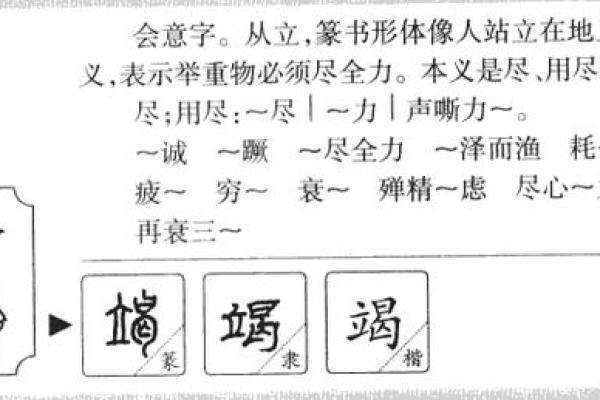 会意字。从立,篆书形体像人站立在地
义,表示举重物必须尽全力。本义是尽、用尽
尽;用尽:～尽|～力|声嘶力～。
～诚 ～蹶 ～尽全力 ～泽而渔 耗
疲～ 穷～ 衰～ 殚精～虑 尽心～
再衰三～
竭 篆 竭 隶 竭 楷